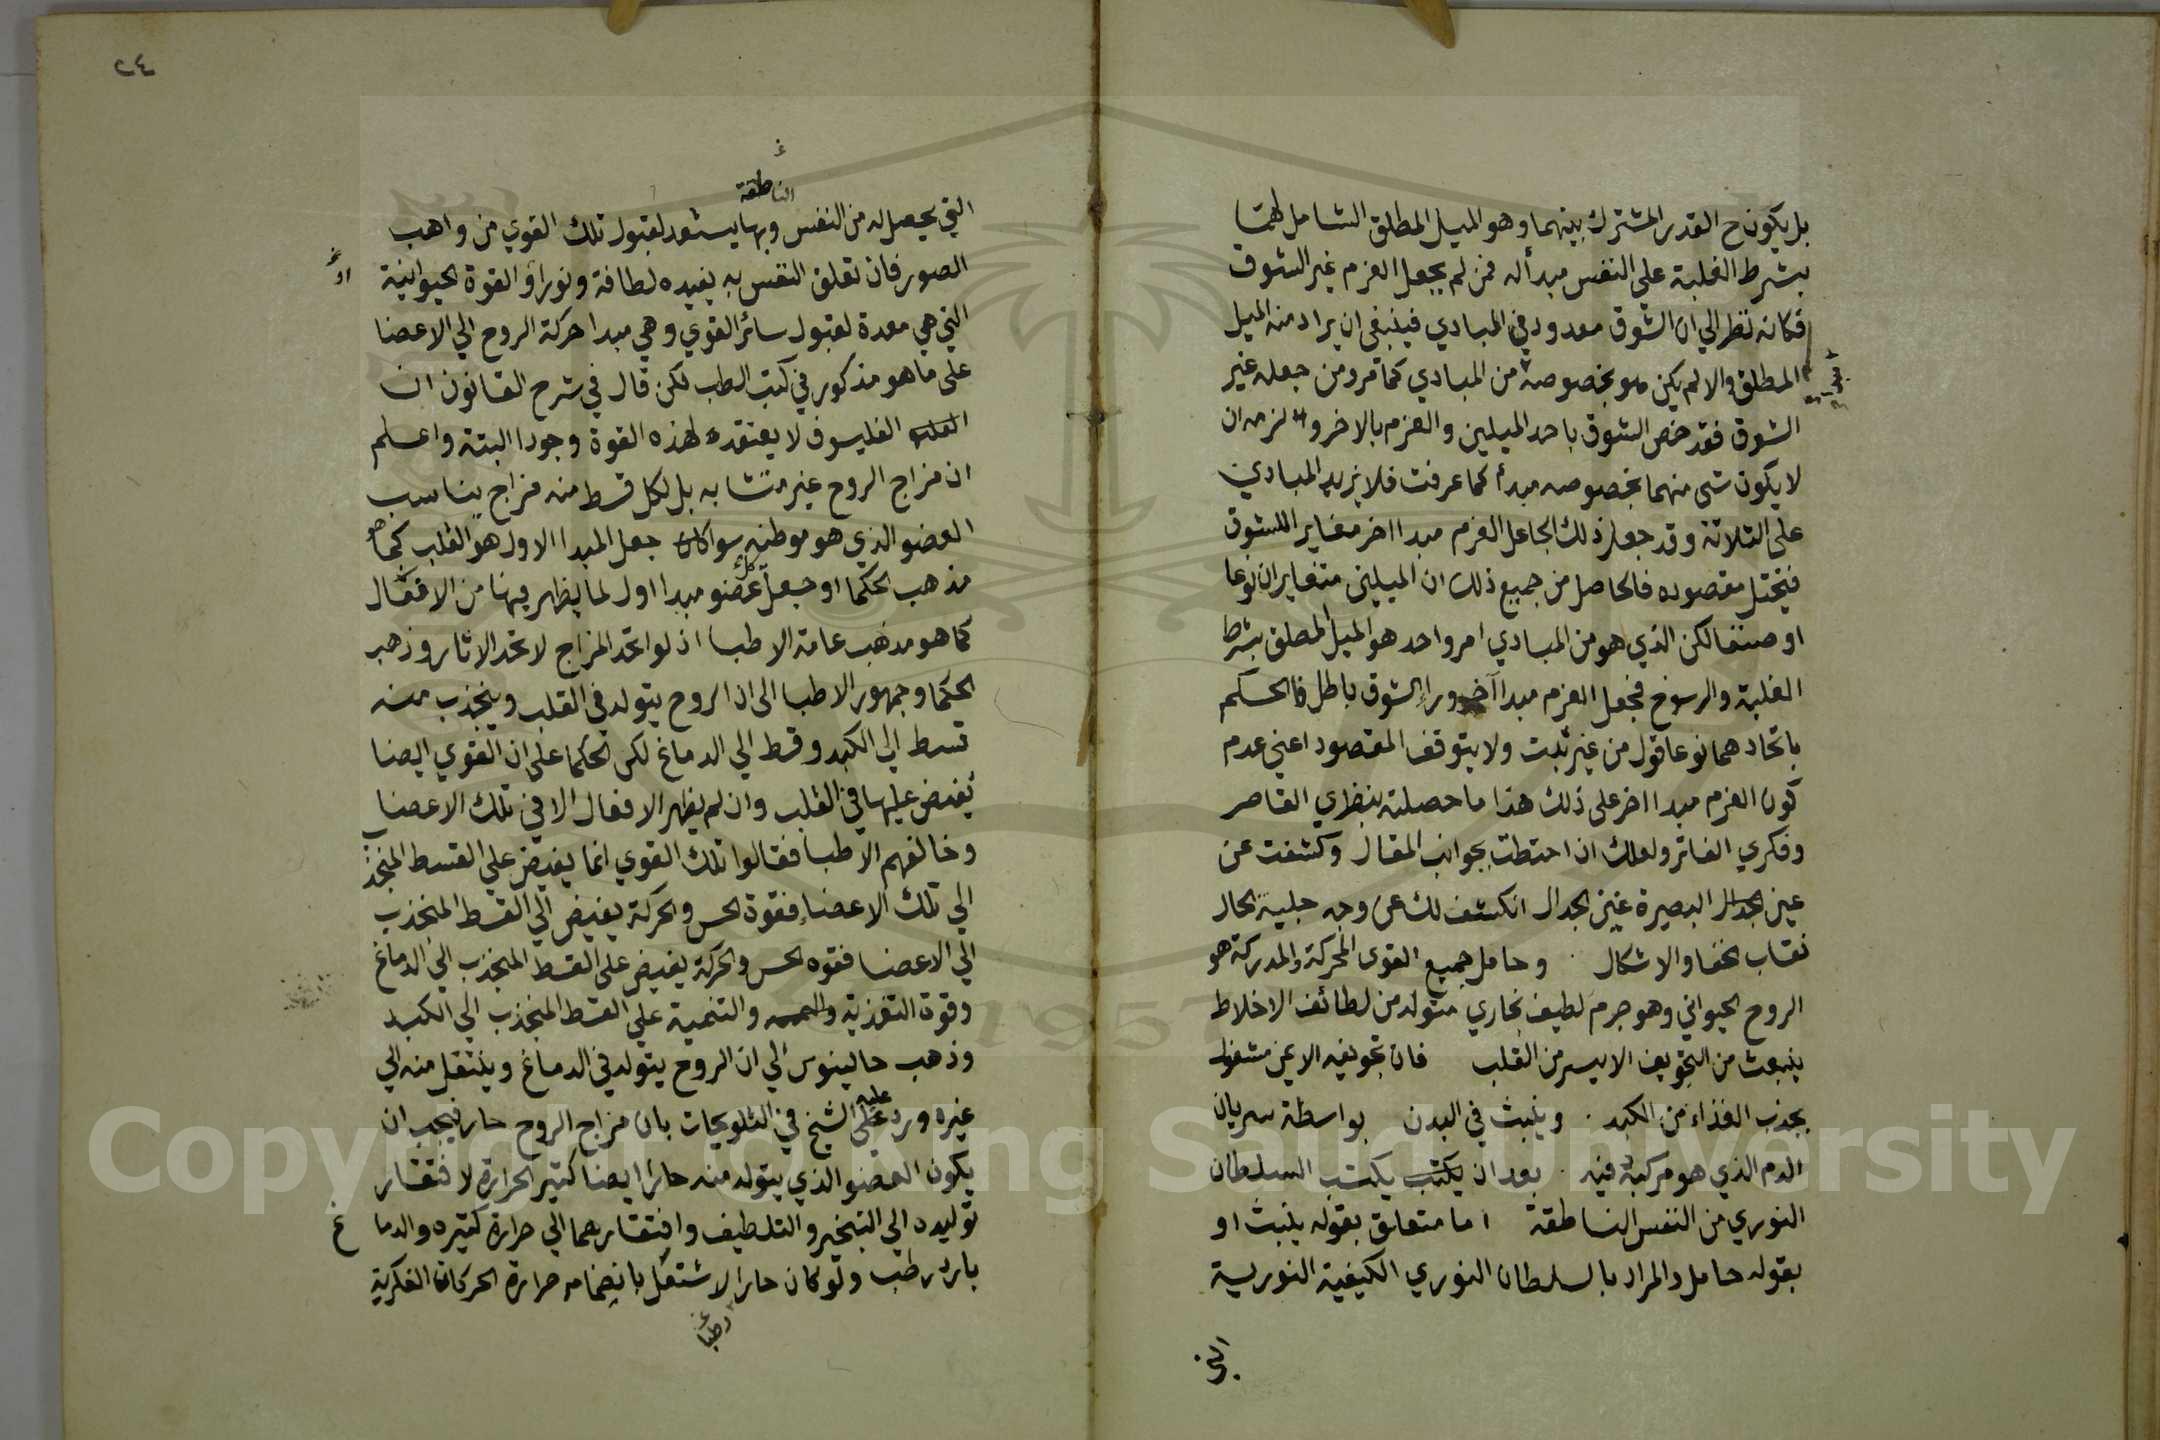 بل يكون ح القدر المشترك بينهما وهو الميل المطلق الشامل لهما
بشرط الغلبة على النفس مبدأ له فمن لم يجعل العزم غير الشوق
فكانه نظر الي ان الشوق معدود في المبادي فينبغى ان يراد منه الميل
المطلق والا لم يكن هو بخصوصه من المبادي كما مر ومن جعله غير
الشوق فقد خص الشوق باحد الميلين والعزم بالاخر و لزمه ان
لا يكون شى منهما بخصوصه مبدأ كما عرفت فلا يزيد المبادي
على الثلاثة وقد جعل ذلك الجاعل العزم مبدا اخر مغاير اللشوق
فيختل مقصوده فالحاصل من جميع ذلك ان الميلين متغايران نوعا
او صنفا لكن الذي هو من المبادي امر واحد هو الميل المطلق بشرط
الغلبة والرسوخ فجعل العزم مبدا آخر وراء الشوق باطل فالحكم
باتحادهما نوعا قول من غير ثبت ولا يتوقف المقصود اعني عدم
كون العزم مبدا اخر على ذلك هذا ما حصلته بنظري القاصر
وفكري الفاتر ولعلك ان احتطت بجوانب المقال وكشفت عن
عين الجدال البصيرة غين الجدال انكشف لك عن وجه جلية الحال
نقاب الخفا والاشكال وحامل جميع القوى المحركة والمدركة هو
الروح الحيواني وهو جرم لطيف بخاري متولد من لطائف الاخلاط
ينبعث من التجويف الايسر من القلب فان تجويفه الايمن مشغول
بجذب الغذاء من الكبد وينبث في البدن بواسطة سريان
الدم الذي هو مركبه فيه بعد ان يكتب يكتسب السلطان
النوري من النفس الناطقة اما متعلق بقوله ينبث او
بقوله حامل والمراد بالسلطان النوري الكيفية النورية
التي
٢٤
غ
الناطقة
التي يحصل له من النفس وبها يستعد لقبول تلك القوي من واهب
الصور فان تعلق النفس به يفيده لطافة ونورا و القوة الحيوانية
او غ
التي هي معدة لقبول سائر القوي وهي مبدا حركة الروح الي الاعضا
على ما هو مذكور في كتب الطب لكن قال في شرح القانون ان
الفليسوف لا يعتقد لهذه القوة وجودا البتة واعلم
ان مزاج الروح غير متشابه بل لكل قسط منه مزاج يناسب
العضو الذي هو موطنه سوا كان جعل المبدا الاول هو القلب كما هو
مذهب الحكما او جعل كل عضو مبدا اول لما يظهر فيها من الافعال
كما هو مذهب عامة الاطبا اذ لو اتحد المزاج لاتحد الاثار وذهب
الحكما وجمهور الاطبا الى ان الروح يتولد في القلب وينجذب منه
قسط الي الكبد وقسط الي الدماغ لكن الحكما على ان القوي ايضا
تفيض عليها في القلب وان لم يظهر الافعال الا في تلك الاعضا
وخالفهم الاطبا فقالوا تلك القوي انما يفيض علي القسط المنجذب
الي تلك الاعضاء فقوة الحس والحركة يفيض الي القسط المنجذب
الي الاعضا فقوه الحس والحركة يفيض على القسط المنجذب الي الدماغ
وقوة التغذية والتنمية علي القسط المنجذب الي الكبد
وذهب جالينوس الي ان الروح يتولد في الدماغ وينتقل منه الي
غيره ورد عليه الشيخ في التلويحات بان مزاج الروح حار فيجب ان
يكون العضو الذي يتولد منه حارا ايضا كثير الحرارة لافتقار
توليده الي التبخير والتلطيف وافتقارهما الي حرارة كثيره والدما
غ
بارد رطب ولو كان حارا لاشتعل بانضمامه حرارة الحركات الفكرية
رطبا غ